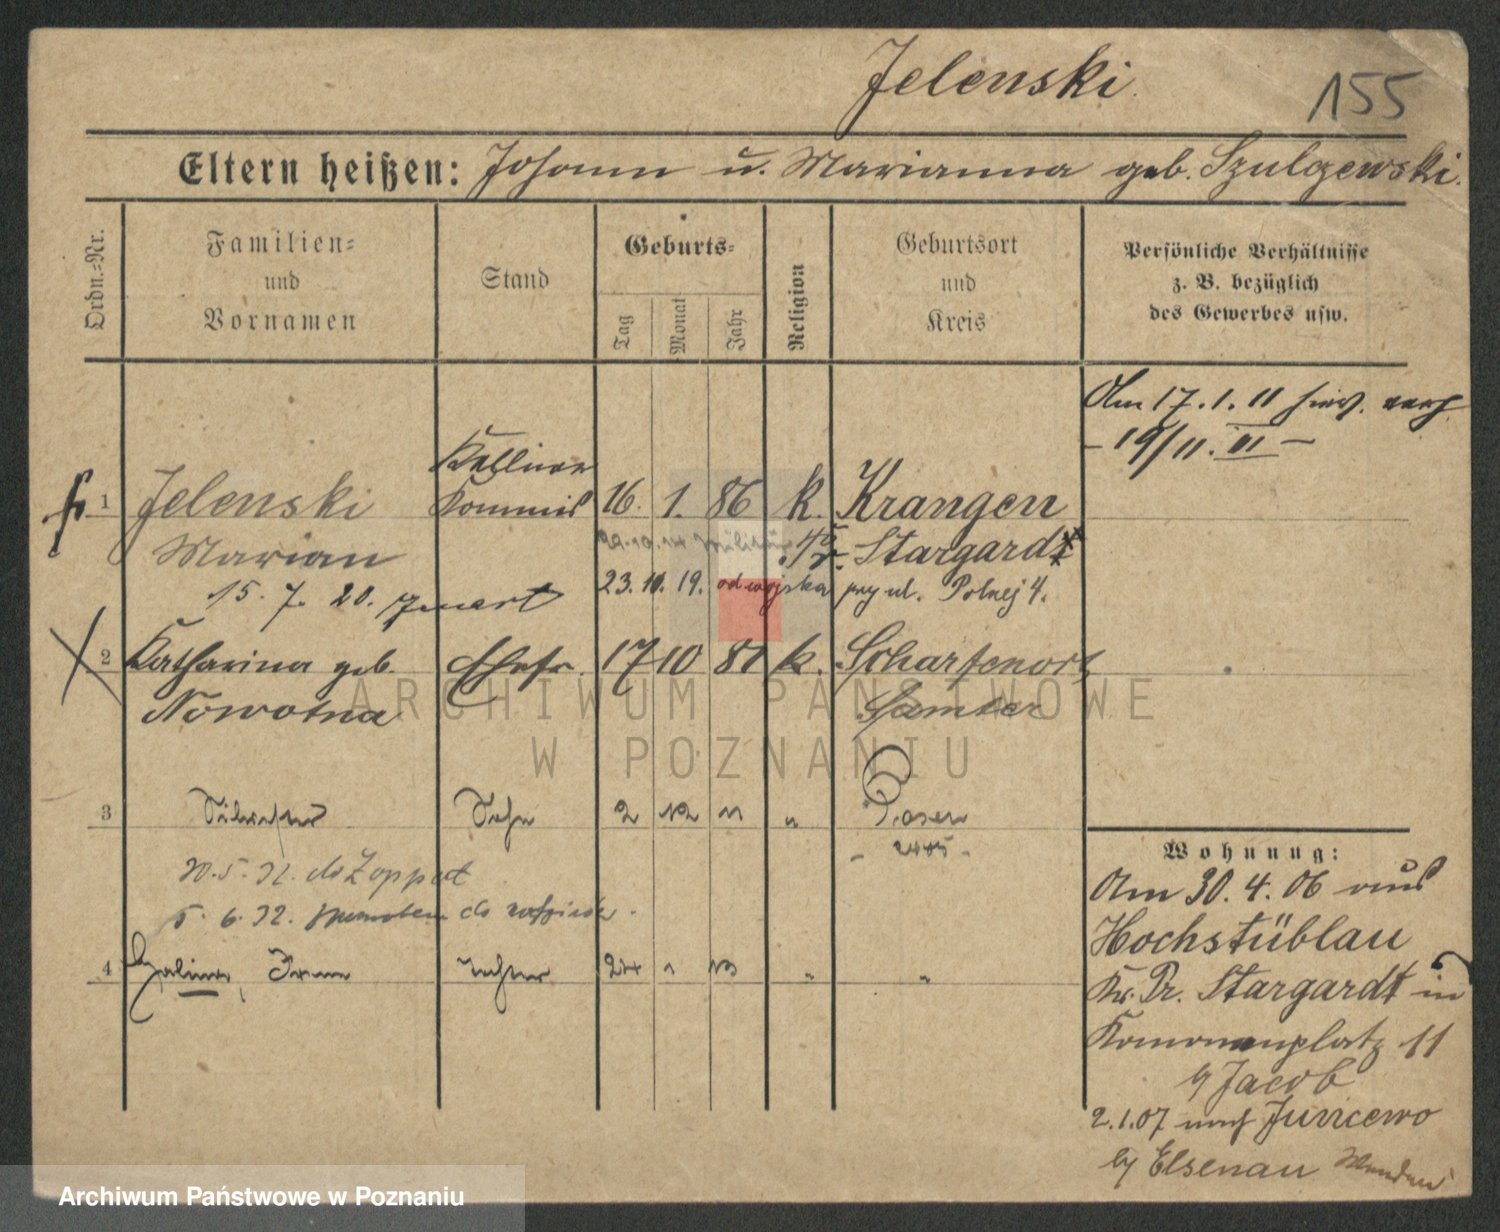 Jelenski
155
Eltern heißen: Johann u. Marianna geb. Szulczewski.
Ordn.-Nr.
Familien-
und
Vornamen
Stand
Geburts-
Tag
Monat
Jahr
Religion
Geburtsort
und
Kreis
Persönliche Verhältnisse
z. B. bezüglich
des Gewerbes usw.
Am 17.1.11
- 19/11. 11 -
Kellner
1 Jelenski Kommis 16. 1. 86 k. Krangen
Marian Stargardt
23. 10. 19. od wojska przy ul. Polnej 4.
15. 7. 20. zmarł
2 Katharina geb. Ehefr. 17 10 81 k. Scharfenort
Nowotna Samter
3 Sohn 2 12 11 " Posen
20.5.32. do Zoppot
5. 6. 32. do
4 Halina, Irene Tochter 24 1 13 " "
Wohnung:
Am 30. 4. 06 aus
Hochstüblau
Kr. Pr. Stargardt in
Komornnplatz 11
b/ Jacob
2.1.07 nach Junicewo
b/ Elsenau
ARCHIWUM PAŃSTWOWE
W POZNANIU
Archiwum Państwowe w Poznaniu